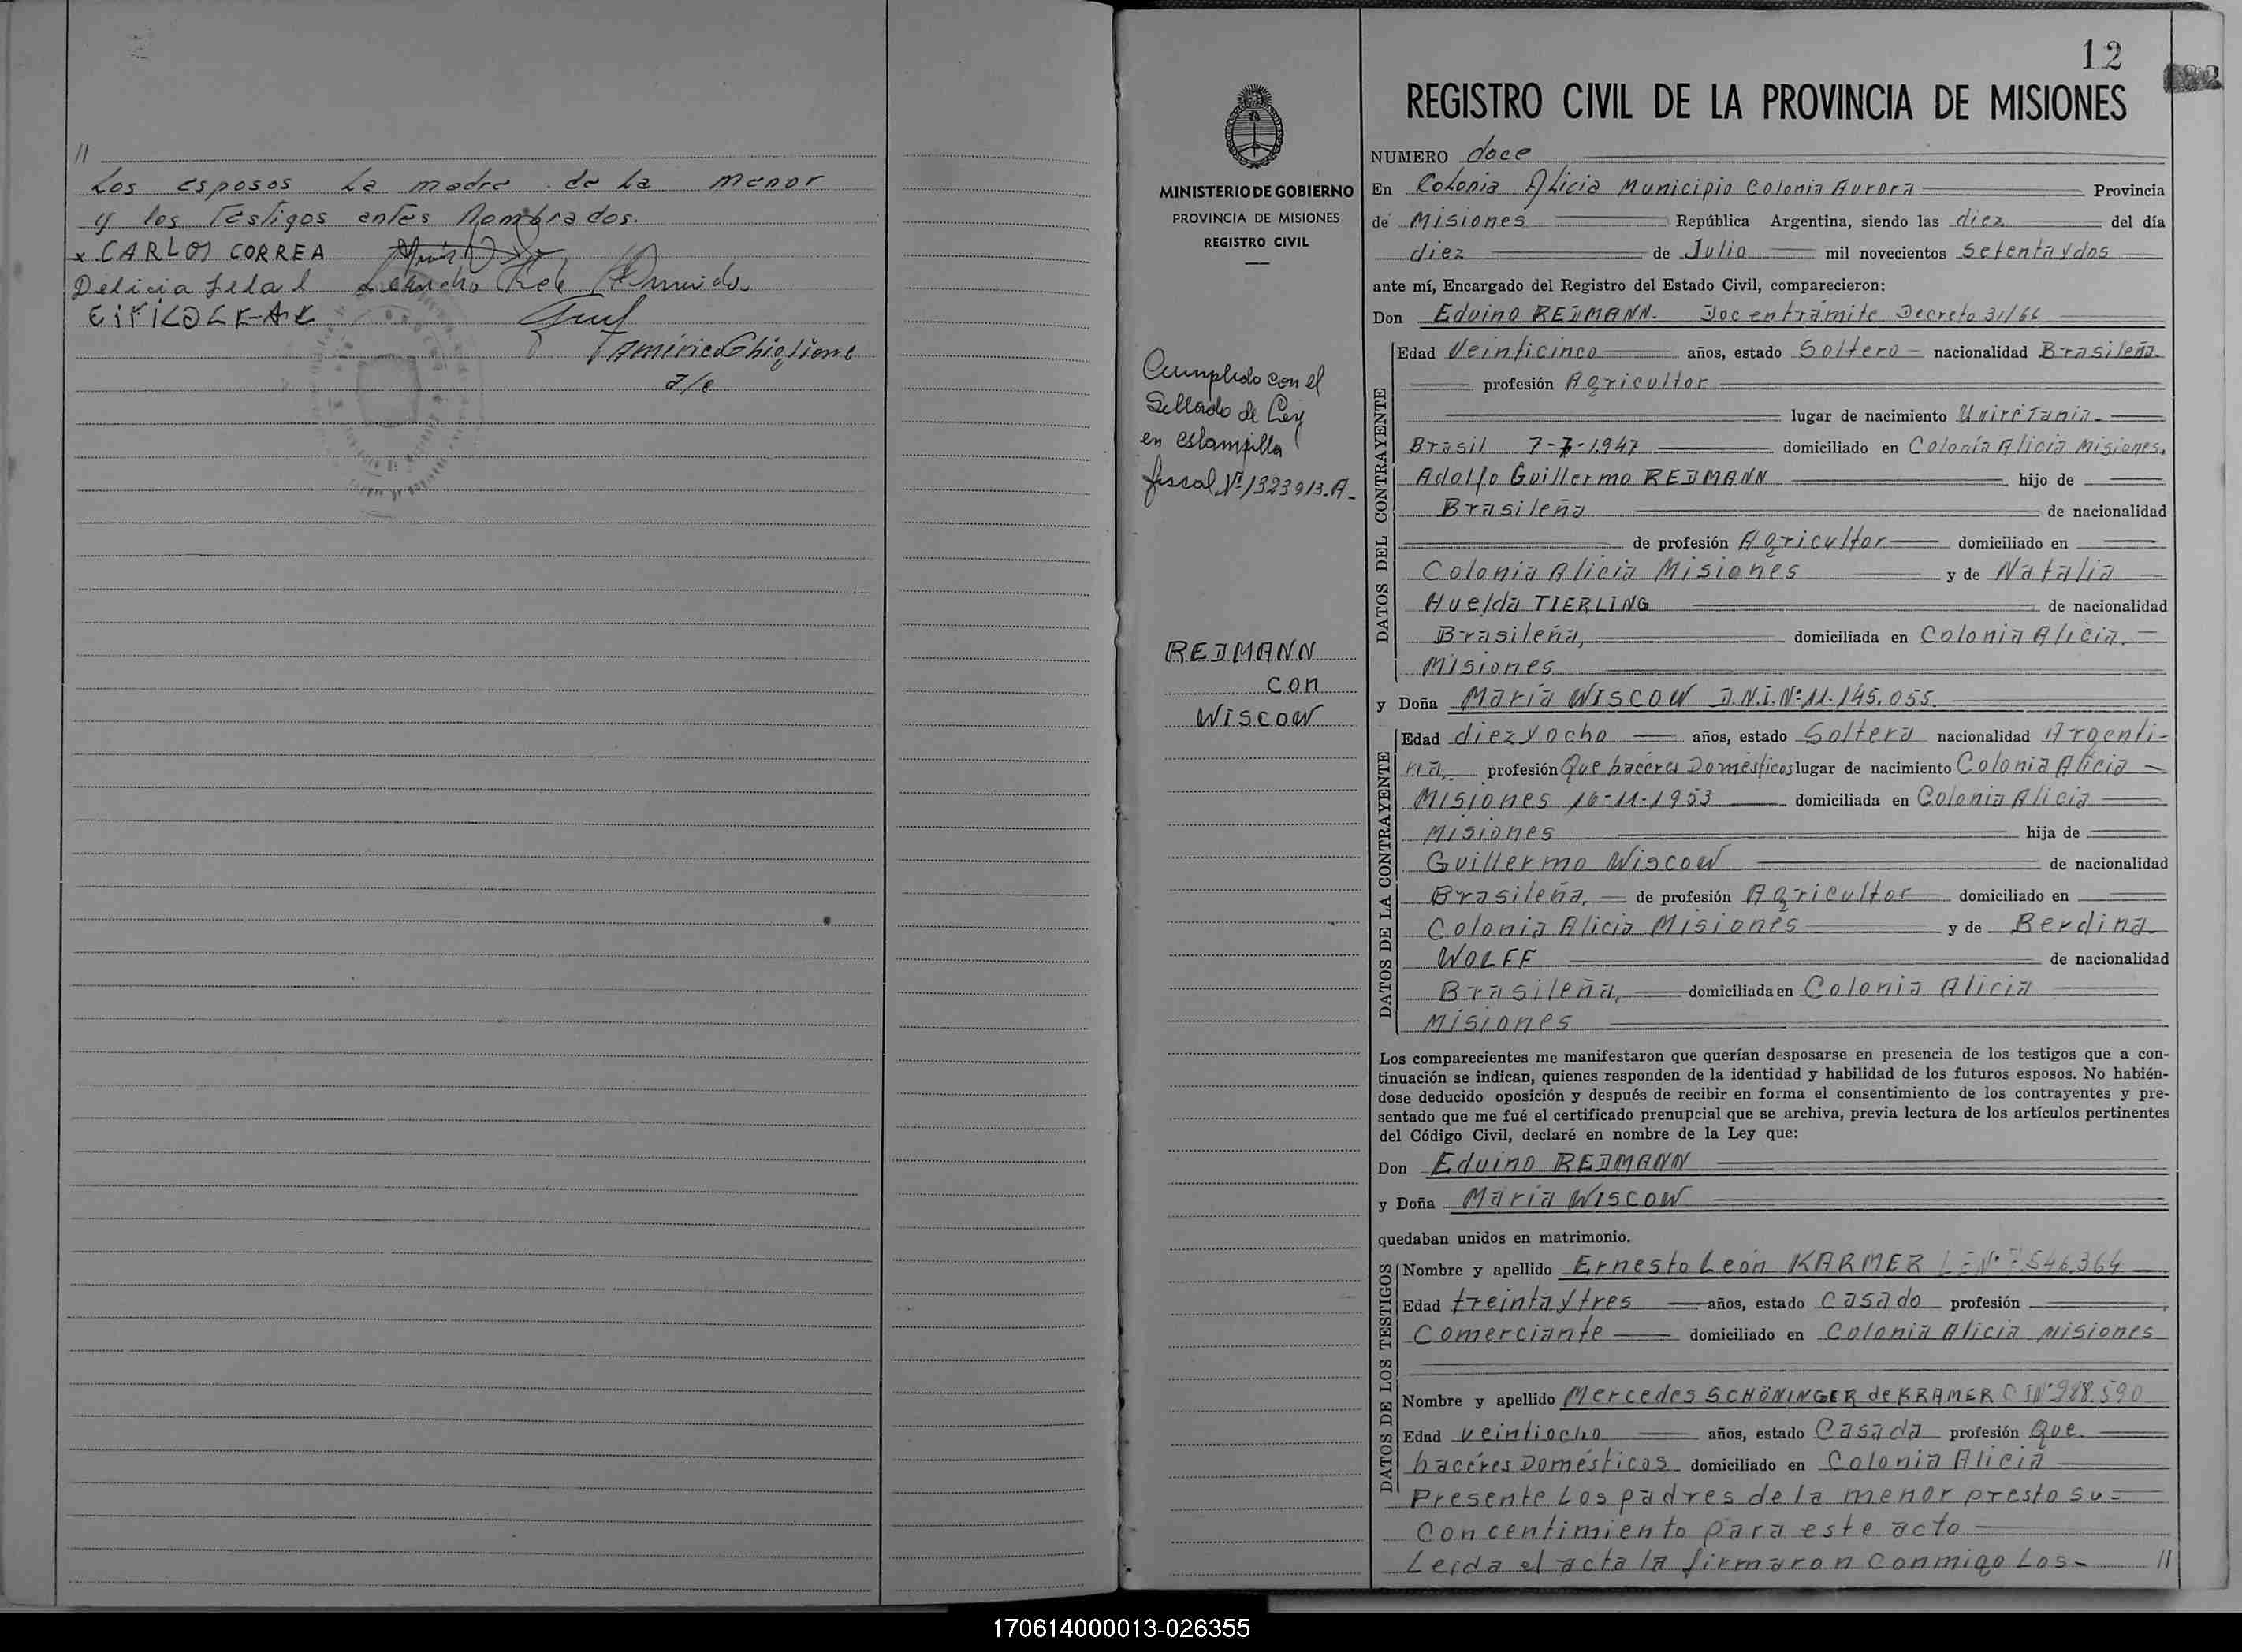 //
Los esposos La madre de la menor
y los Testigos antes Nombrados.
x CARLOS CORREA
América Ghiglione
a/c
12
REGISTRO CIVIL DE LA PROVINCIA DE MISIONES
MINISTERIO DE GOBIERNO
PROVINCIA DE MISIONES
REGISTRO CIVIL
Cumplido con el
Sellado de Ley
en estampilla
fiscal Nº 1323913.A-
REJMANN
con
WISCOW
NUMERO doce
En Colonia Alicia Municipio Colonia Aurora Provincia
de Misiones República Argentina, siendo las diez del día
diez de Julio mil novecientos Setenta y dos
ante mí, Encargado del Registro del Estado Civil, comparecieron:
Don Eduino REJMANN. Doc en trámite Decreto 31/66
DATOS DEL CONTRAYENTE
Edad Veinticinco años, estado Soltero nacionalidad Brasileña.
profesión Agricultor
lugar de nacimiento
Brasil 7-7-1.947 domiciliado en Colonia Alicia Misiones.
Adolfo Guillermo REJMANN hijo de
Brasileña de nacionalidad
de profesión Agricultor domiciliado en
Colonia Alicia Misiones y de Natalia
Huelda TIERLING de nacionalidad
Brasileña, domiciliada en Colonia Alicia.
Misiones
y Doña María WISCOW D.N.I.Nº 11.145.055.
DATOS DE LA CONTRAYENTE
Edad diez y ocho años, estado Soltera nacionalidad Argenti-
na, profesión Que haceres Domésticos lugar de nacimiento Colonia Alicia
Misiones 16-11-1953 domiciliada en Colonia Alicia
Misiones hija de
Guillermo Wiscow de nacionalidad
Brasileña, de profesión Agricultor domiciliado en
Colonia Alicia Misiones y de Berdina
WOLFF de nacionalidad
Brasileña, domiciliada en Colonia Alicia
Misiones
Los comparecientes me manifestaron que querían desposarse en presencia de los testigos que a con-
tinuación se indican, quienes responden de la identidad y habilidad de los futuros esposos. No habién-
dose deducido oposición y después de recibir en forma el consentimiento de los contrayentes y pre-
sentado que me fué el certificado prenupcial que se archiva, previa lectura de los artículos pertinentes
del Código Civil, declaré en nombre de la Ley que:
Don Eduino REJMANN
y Doña María WISCOW
quedaban unidos en matrimonio.
DATOS DE LOS TESTIGOS
Nombre y apellido Ernesto León KARMER L E Nº 7.546.364
Edad treinta y tres años, estado Casado profesión
Comerciante domiciliado en Colonia Alicia Misiones
Nombre y apellido Mercedes SCHÖNINGER de KRAMER C I Nº 988.590
Edad veintiocho años, estado Casada profesión Que
hacéres Domésticos domiciliado en Colonia Alicia
Presente Los padres de la menor presto su=
Concentimiento para este acto
Leida el acta la firmaron conmigo Los- //
170614000013-026355